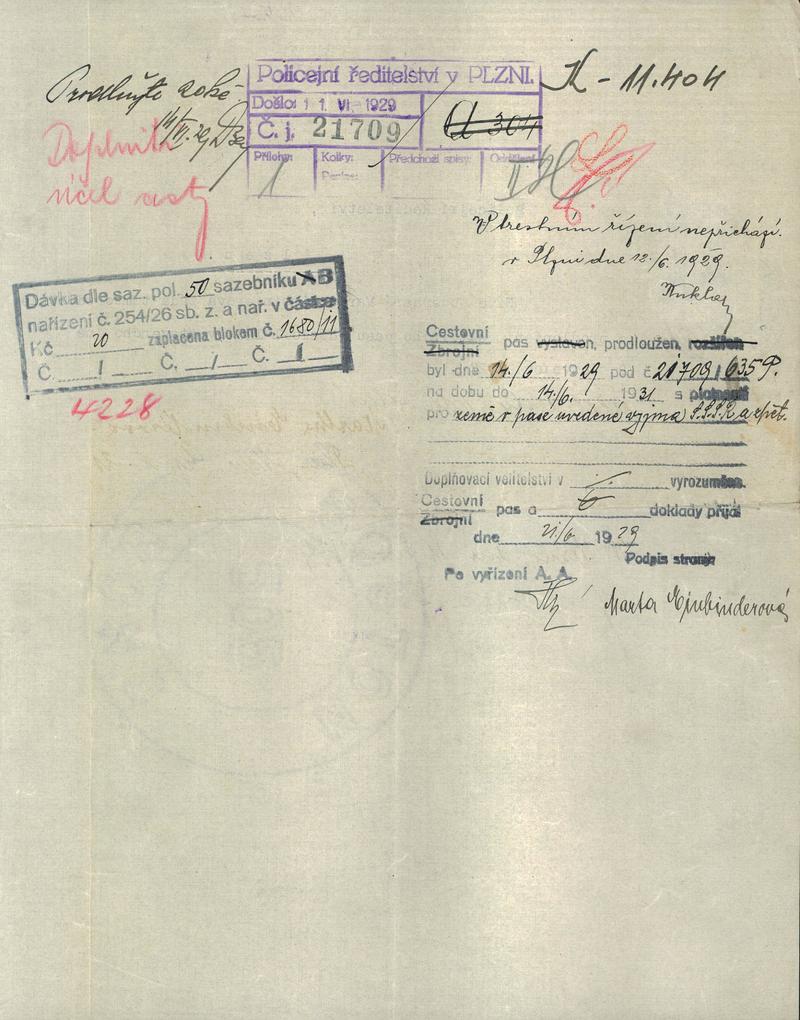 K - 11.404
Policejní ředitelství v PLZNI.
Došlo: 11. VI. 1929
Č. j. 21709
A 304
Přílohy: 1
Kolky:
Předchozí spisy:
Oddělení
II
14/VI. 29
Doplniti
účel cesty
V trestním řízení nepřichází.
v Plzni dne 12./6. 1929.
Dávka dle saz. pol. 50 sazebníku AB
nařízení č. 254/26 sb. z. a nař. v částce
Kč 20 zaplacena blokem č. 1680/11
Č. / Č. / Č. /
4228
Cestovní
Zbrojní
pas vystaven, prodloužen, rozšířen
byl dne 14./6 1929 pod č. 21709/6359.
na dobu do 14./6. 1931 s platností
pro země v pase uvedené vyjma S.S.S.R. a zpět.
Doplňovací velitelství v /. vyrozuměno.
Cestovní
Zbrojní
pas a 6 doklady přijal
dne 21/6 1929
Podpis strany:
Po vyřízení A. A.
Marta